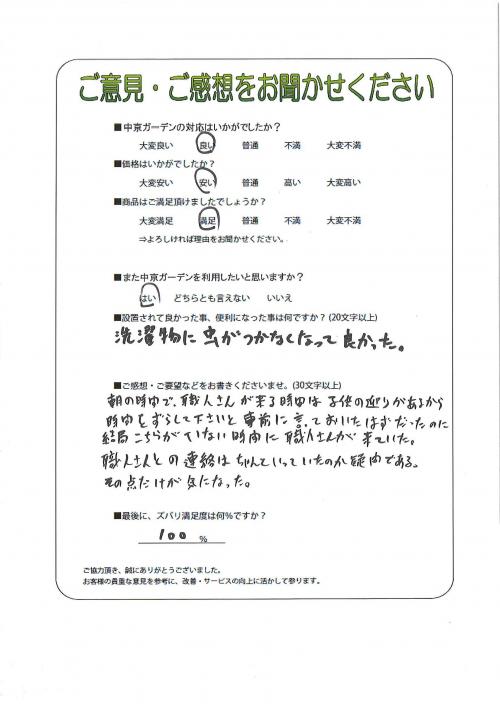 ご意見・ご感想をお聞かせください
■中京ガーデンの対応はいかがでしたか？
大変良い 良い 普通 不満 大変不満
■価格はいかがでしたか？
大変安い 安い 普通 高い 大変高い
■商品はご満足頂けましたでしょうか？
大変満足 満足 普通 不満 大変不満
⇒よろしければ理由をお聞かせください。
■また中京ガーデンを利用したいと思いますか？
はい どちらとも言えない いいえ
■設置されて良かった事、便利になった事は何ですか？(20文字以上)
洗濯物に虫がつかなくなって良かった。
■ご感想・ご要望などをお書きくださいませ。(30文字以上)
朝の時間で、職人さんが来る時間は子供の送りがあるから
時間をずらして下さいと事前に言っておいたはずだったのに
結局こちらがいない時間に職人さんが来ていた。
職人さんとの連絡はちゃんといっていたのか疑問である。
その点だけが気になった。
■最後に、ズバリ満足度は何%ですか？
100 %
ご協力頂き、誠にありがとうございました。
お客様の貴重な意見を参考に、改善・サービスの向上に活かして参ります。